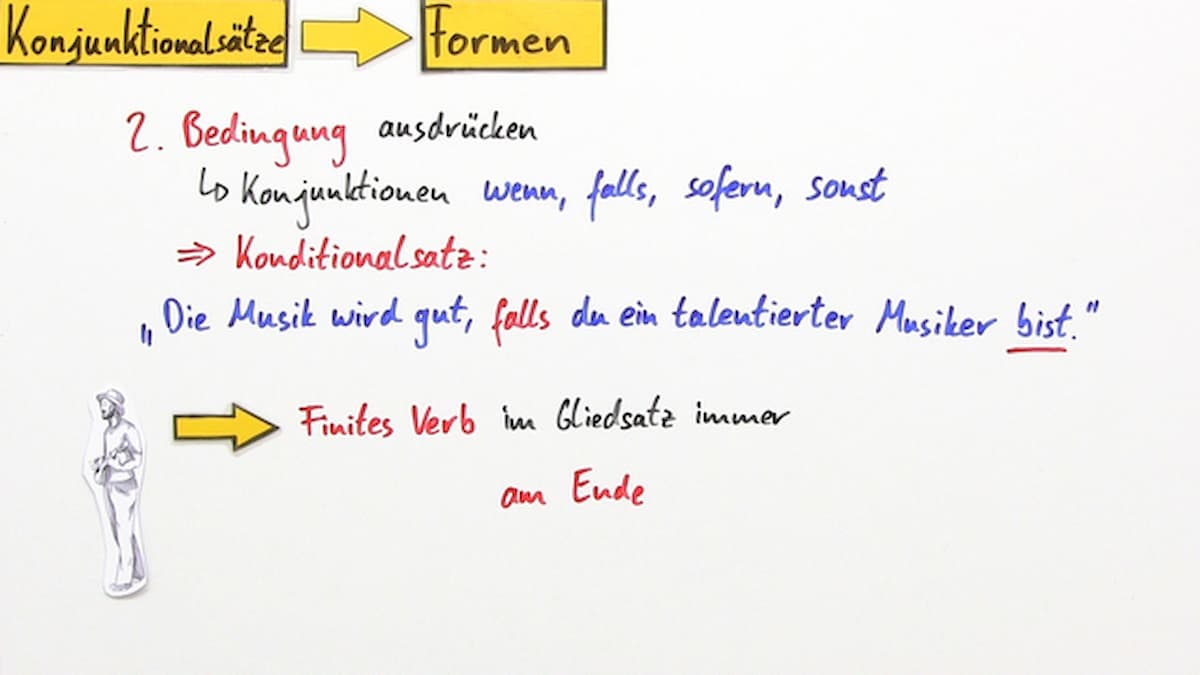 Konjunktionalsätze Formen
2. Bedingung ausdrücken
Konjunktionen wenn, falls, sofern, sonst
⇒ Konditionalsatz:
„Die Musik wird gut, falls du ein talentierter Musiker bist."
Finites Verb im Gliedsatz immer
am Ende